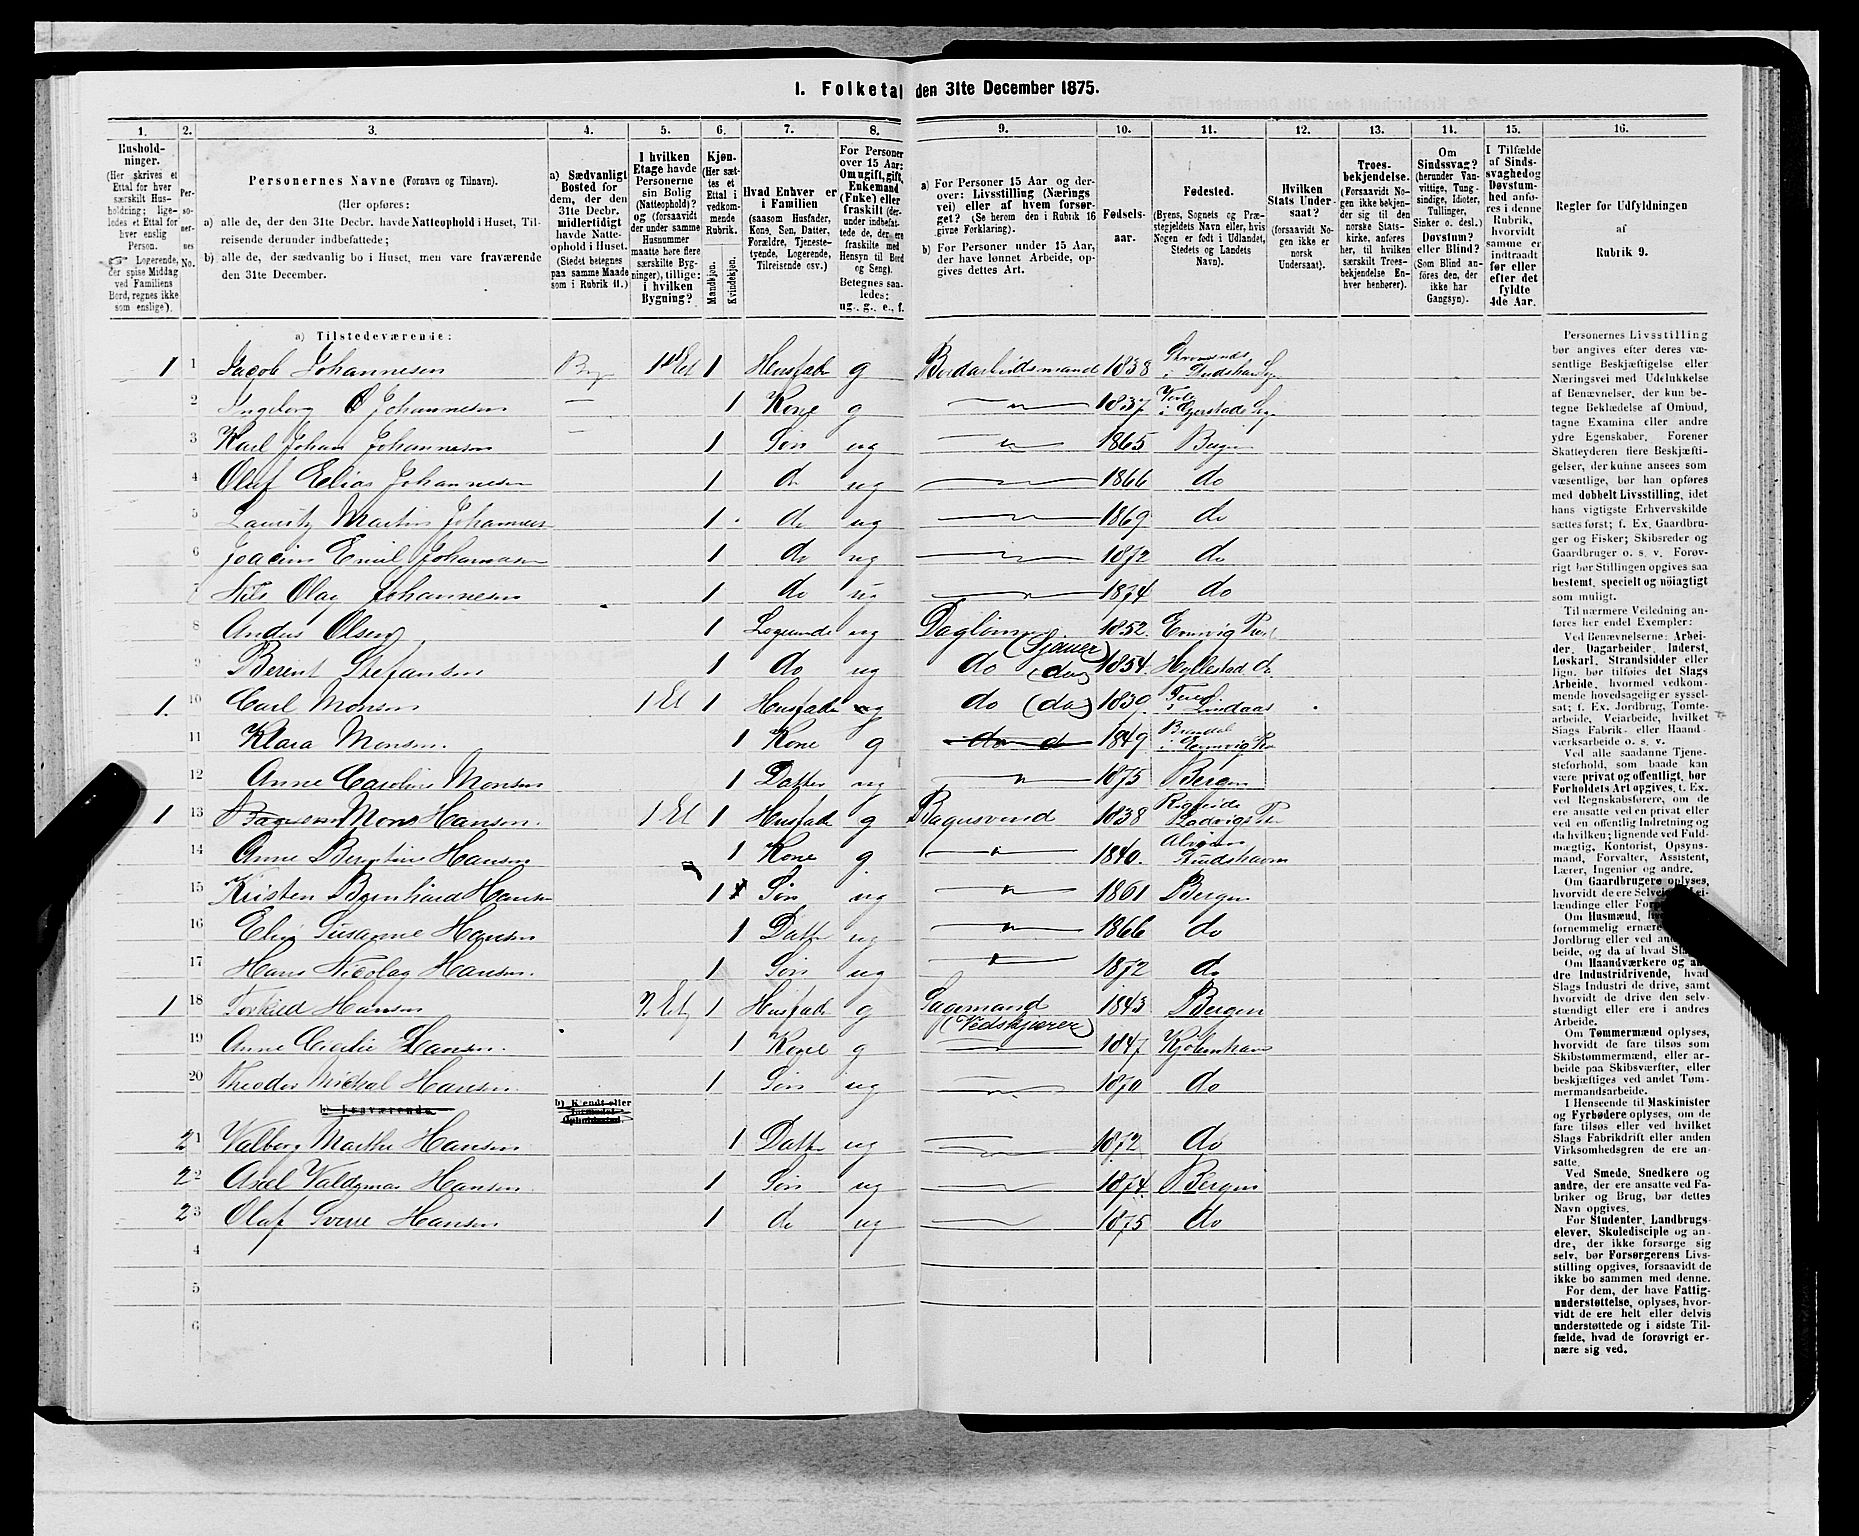 I. Folketal den 31te December 1875.
1. 2. 3. 4. 5. 6. 7. 8. 9. 10. 11. 12. 13. 14. 15. 16.
Hushold-
ninger.
(Her skrives et
Ettal for hver
særskilt Hus-
holdning; lige-
ledes et Ettal for
hver enslig
Person.
Logerende,
der spise Middag
ved Familiens
Bord, regnes ikke
som enslige).
Per-
so-
ner-
nes
No.
Personernes Navne (Fornavn og Tilnavn).
(Her opføres:
a) alle de, der den 31te Decbr. havde Natteophold i Huset, Til-
reisende derunder indbefattede;
b) alle de, der sædvanlig bo i Huset, men vare fraværende
den 31te December.
a) Sædvanligt
Bosted for
dem, der den
31te Decbr.
midlertidigt
havde Natte-
ophold i Huset.
(Stedet betegnes
paa samme Maade
som i Rubrik 11.)
I hvilken
Etage havde
Personerne
sin Bolig
(Natteophold)?
og (forsaavidt
der under samme
Husnummer
maatte høre flere
særskilte Byg-
ninger), tillige:
i hvilken
Bygning?
Kjøn.
(Her sæt-
tes et
Ettal i
vedkom-
mende
Rubrik.
Mandkjøn.
Kvindekjøn.
Hvad Enhver er
i Familien
(saasom Husfader,
Kone, Søn, Datter,
Forældre, Tjeneste-
tyende, Logerende,
Tilreisende osv.)
For Personer
over 15 Aar:
Om ugift, gift,
Enkemand
(Enke) eller
fraskilt (der-
under indbefat-
tede de, der ere
fraskilte med
Hensyn til Bord
og Seng).
Betegnes saa-
ledes:
ug., g., e., f.
a) For Personer 15 Aar og der-
over: Livsstilling (Nærings-
vei) eller af hvem forsør-
get? (Se herom den i Rubrik 16
givne Forklaring).
b) For Personer under 15 Aar,
der have lønnet Arbeide, op-
gives dettes Art.
Fødsels-
aar.
Fødested.
(Byens, Sognets og Præ-
stegjeldets Navn eller, hvis
Nogen er født i Udlandet,
Stedets og Landets
Navn).
Hvilken
Stats Under-
saat?
(forsaavidt No-
gen ikke er
norsk
Undersaat).
Troes-
bekjendelse.
(Forsaavidt No-
gen ikke bekjen-
der sig til den
norske Stats-
kirke, anføres
her, til hvilken
særskilt Troes-
bekjendelse En-
hver henhører).
Om
Sindssvag?
(herunder Van-
vittige, Tung-
sindige, Idioter,
Tullinger,
Sinker o. desl.)
Døvstum?
eller Blind?
(Som Blind an-
føres den, der
ikke har
Gangsyn).
I Tilfælde
af Sinds-
svaghed og
Døvstum-
hed anfø-
res i denne
Rubrik,
hvorvidt
samme er
indtraadt
før eller
efter det
fyldte
4de Aar.
Regler for Udfyldningen
af
Rubrik 9.
a) Tilstedeværende:
1 1 Jacob Johannesen 1ste Et 1 Husfader g 1838
2 Ingeborg O Johannesen — 1 Kone g 1837
3 Karl Johan Johannesen — 1 Søn ug 1865 Bergen
4 Oluf Elias Johannesen 1 do ug 1866 do
5 Lauritz Martin Johannesen 1 do ug 1869 do
6 Joacim Emil Johannesen 1 do ug 1872 do
7 Nils Olay Johannesen 1 do ug 1874 do
8 Anders Olsen 1 Logerende ug Daglønner (Sjouer) 1852
9 Berent Stefansen 1 do ug do (do) 1854 Hyllestad do
1. 10 Carl Monsen 1 Et 1 Husfader g do (do) 1839 Lindaas
11 Klara Monsen 1 Kone g 1849
12 Anne Caroline Monsen 1 Datter ug 1875 Bergen
1 13 Mons Hansen. 1 Et 1 Husfader g Bagersvend 1838
14 Anne Bergitine Hansen 1 Kone g 1840. Skudshavn
15 Kristen Bernhard Hansen 1 Søn ug 1861 Bergen
16 Elise Susanne Hansen 1 Datter ug 1866 do
17 Hans Nicolay Hansen. 1 Søn ug 1872 do
1 18 Torkild Hansen 2 Etg 1 Husfader g Sagmand (Vedskjærer) 1843 Bergen
19 Anne Cecilie Hansen. 1 Kone g 1847 Kjøbenhavn
20 Theodor Mickal Hansen. 1 Søn ug 1870 do
b) Fraværende.
b) Kjendt eller
formodet
Opholdssted.
21 Valborg Marthe Hansen 1 Datter ug 1872 do
22 Axel Valdemar Hansen. 1 Søn ug 1874 Bergen
23 Olaf Sverre Hansen 1 do ug 1875 do
4
5
6
Personernes Livsstilling
bør angives efter deres væ-
sentlige Beskjæftigelse eller
Næringsvei med Udelukkelse
af Benævnelser, der kun be-
tegne Beklædelse af Ombud,
tagne Examina eller andre
ydre Egenskaber. Forener
Skatteyderen flere Beskjæfti-
gelser, der kunne ansees som
væsentlige, bør han opføres
med dobbelt Livsstilling, idet
hans vigtigste Erhvervskilde
sættes først; f. Ex. Gaardbru-
ger og Fisker; Skibsreder og
Gaardbruger o. s. v. Forøv-
rigt bør Stillingen opgives saa
bestemt, specielt og nøiagtigt
som muligt.
Til nærmere Veiledning an-
føres her endel Exempler:
Ved Benævnelserne: Arbei-
der, Dagarbeider, Inderst,
Løskarl, Strandsidder eller
lign. bør tilføies det Slags
Arbeide, hvormed vedkom-
mende hovedsagelig er syssel-
sat; f. Ex. Jordbrug, Tomte-
arbeide, Veiarbeide, hvilket
Slags Fabrik- eller Haand-
værksarbeide o. s. v.
Ved alle saadanne Tjene-
steforhold, som baade kan
være privat og offentligt, bør
Forholdets Art opgives, t. Ex.
ved Regnskabsførere, om de
ere ansatte ved en privat eller
ved en offentlig Indretning og
da hvilken; lignende ved Fuld-
mægtig, Kontorist, Opsyns-
mand, Forvalter, Assistent,
Lærer, Ingeniør og andre.
Om Gaardbrugere oplyses,
hvorvidt de ere
lændinge eller
Om Husmænd,
fornemmelig ernære
Jordbrug eller ved
beide, og da af hvad
Om Haandværkere og an-
dre Industridrivende, hvad
Slags Industri de drive, samt
hvorvidt de drive den selv-
stændigt eller ere i andres
Arbeide.
Om Tømmermænd oplyses,
hvorvidt de fare tilsøs som
Skibstømmermænd, eller ar-
beide paa Skibsværfter, eller
beskjæftiges ved andet Tøm-
mermandsarbeide.
I Henseende til Maskinister
og Fyrbødere oplyses, om de
fare tilsøs eller ved hvilket
Slags Fabrikdrift eller anden
Virksomhedsgren de ere an-
satte.
Ved Smede, Snedkere og
andre, der ere ansatte ved Fa-
briker og Brug, bør dettes
Navn opgives.
For Studenter, Landbrugs-
elever, Skoledisciple og an-
dre, der ikke forsørge sig
selv, bør Forsørgerens Livs-
stilling opgives, forsaavidt de
ikke bo sammen med denne.
For dem, der have Fattig-
understøttelse, oplyses, hvor-
vidt de ere helt eller delvis
understøttede og i sidste Til-
fælde, hvad de forøvrigt er-
nære sig ved.